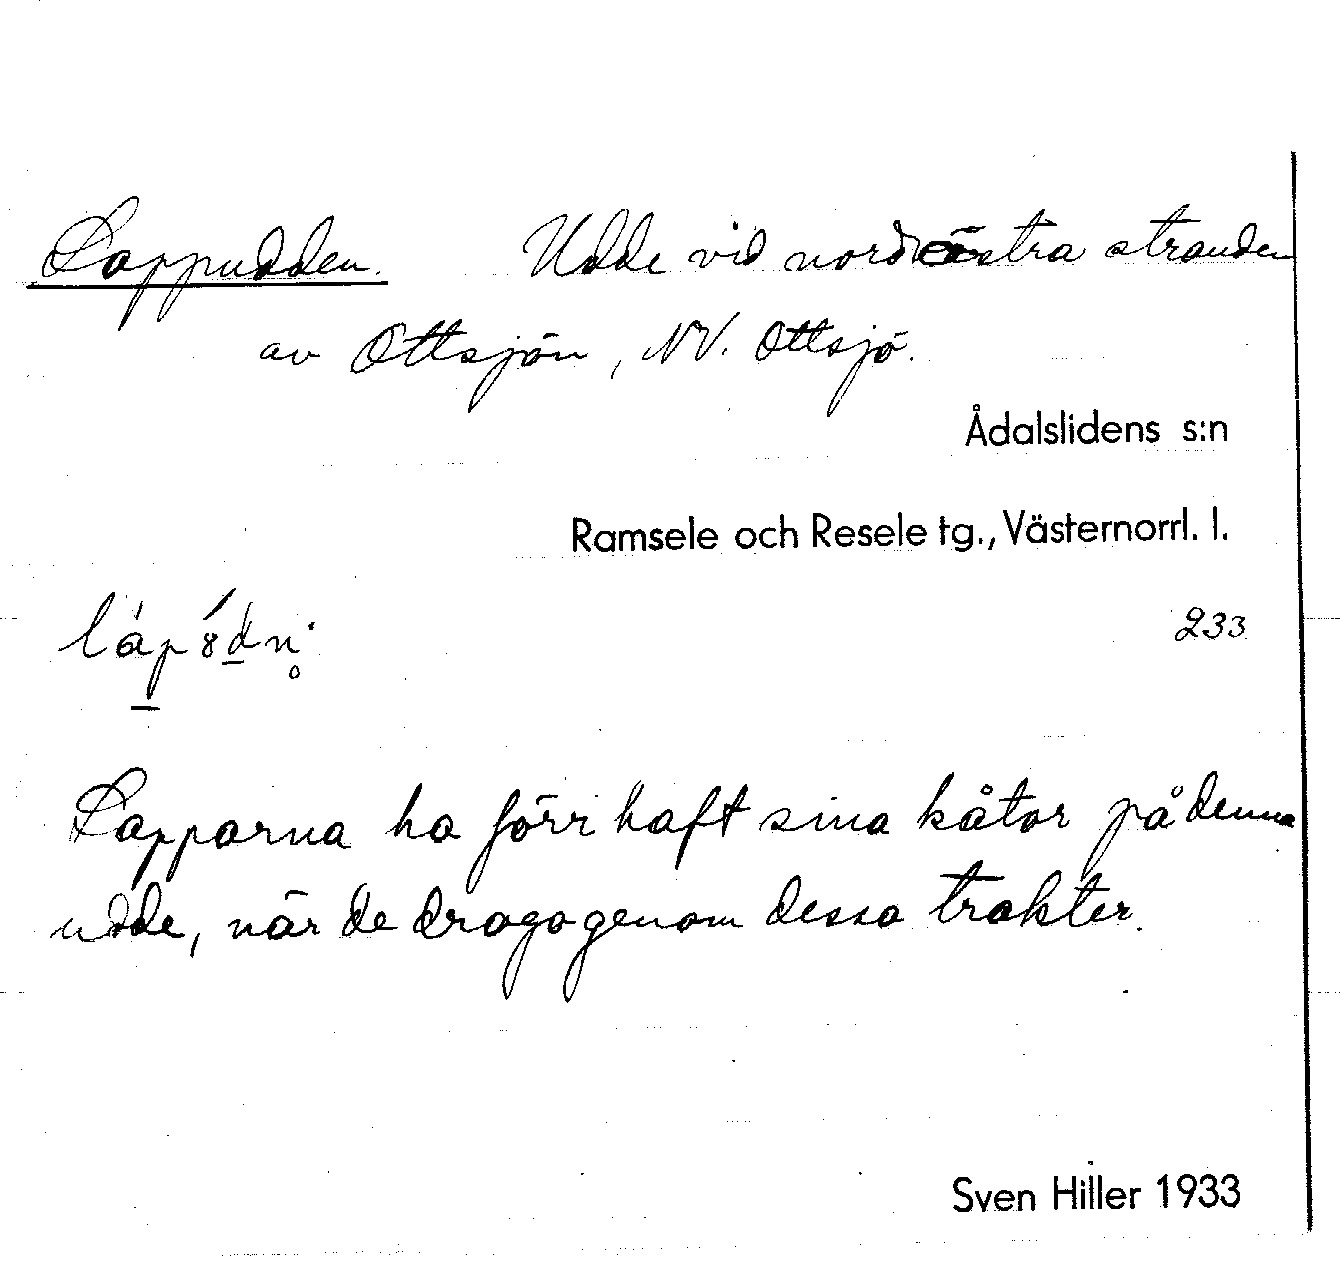 Lappudden. Udde vid nordöstra stranden
av Ottsjön, NV. Ottsjö.
Ådalslidens s:n
Ramsele och Resele tg., Västernorrl. l.
233
Lapparna ha förr haft sina kåtor på denna
udde, när de draga genom dessa trakter.
Sven Hiller 1933